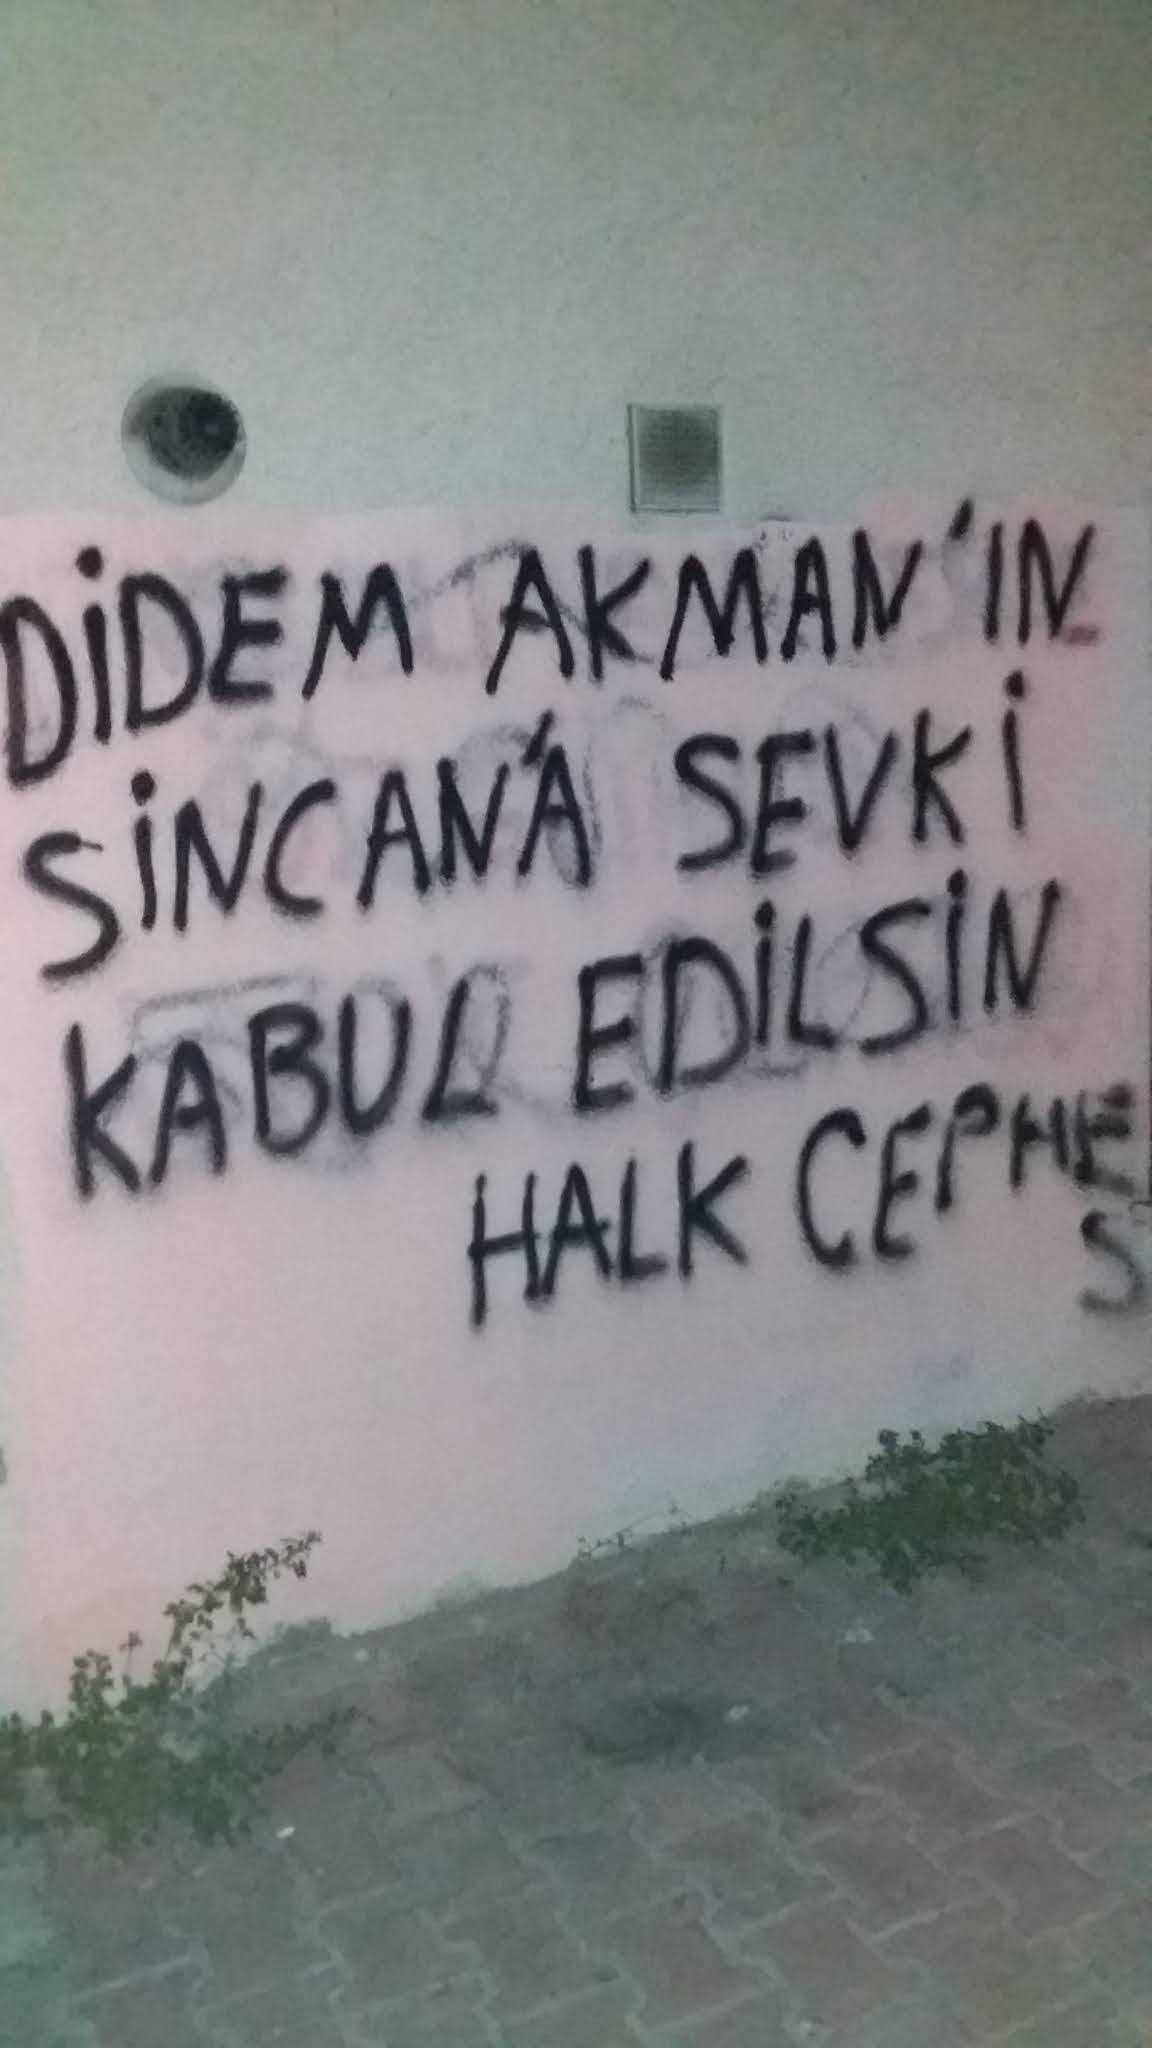 DİDEM AKMAN'IN
SİNCAN'A SEVKİ
KABUL EDİLSİN
HALK CEPHE
S